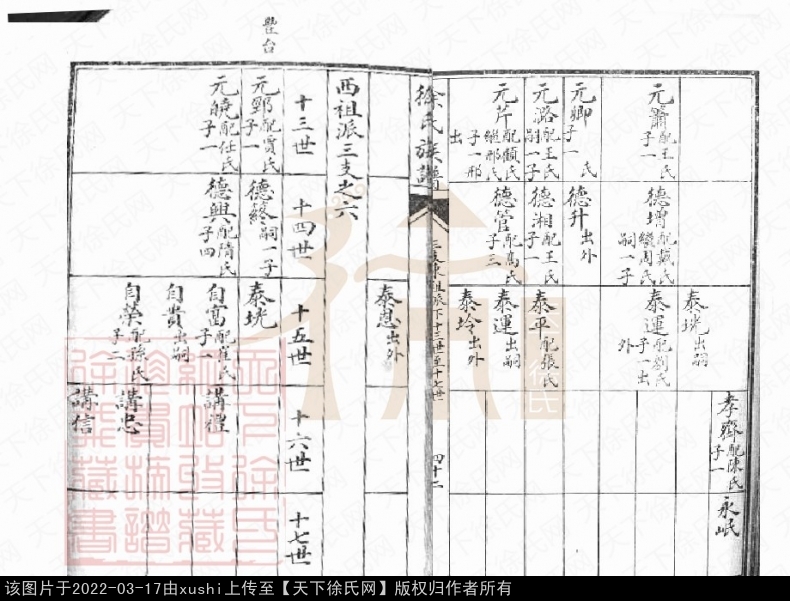 孝齋配陳氏子一
永岷
泰珖出嗣
元簫配王氏子一
德增配戴氏繼周氏嗣一子
泰運配劉氏子一出外
元卿子一
德升出外
元潞配王氏嗣一子
德湘配王氏子一
泰平配張氏
元斤配顧氏繼邢氏子一邢出
德管配高氏子三
泰運出嗣
泰岭出外
徐氏族譜
三支東祖派下十三世至十七世
四十二
泰恩出外
西祖派三支之六
十三世
十四世
十五世
十六世
十七世
豐台
元鄧配賈氏子一
德絳嗣一子
泰珖
元曉配任氏子一
德興配隋氏子四
自富配崔氏子一
講禮
自貴出嗣
自榮配孫氏子二
講忠
講信
该图片于2022-03-17由xushi上传至【天下徐氏网】版权归作者所有